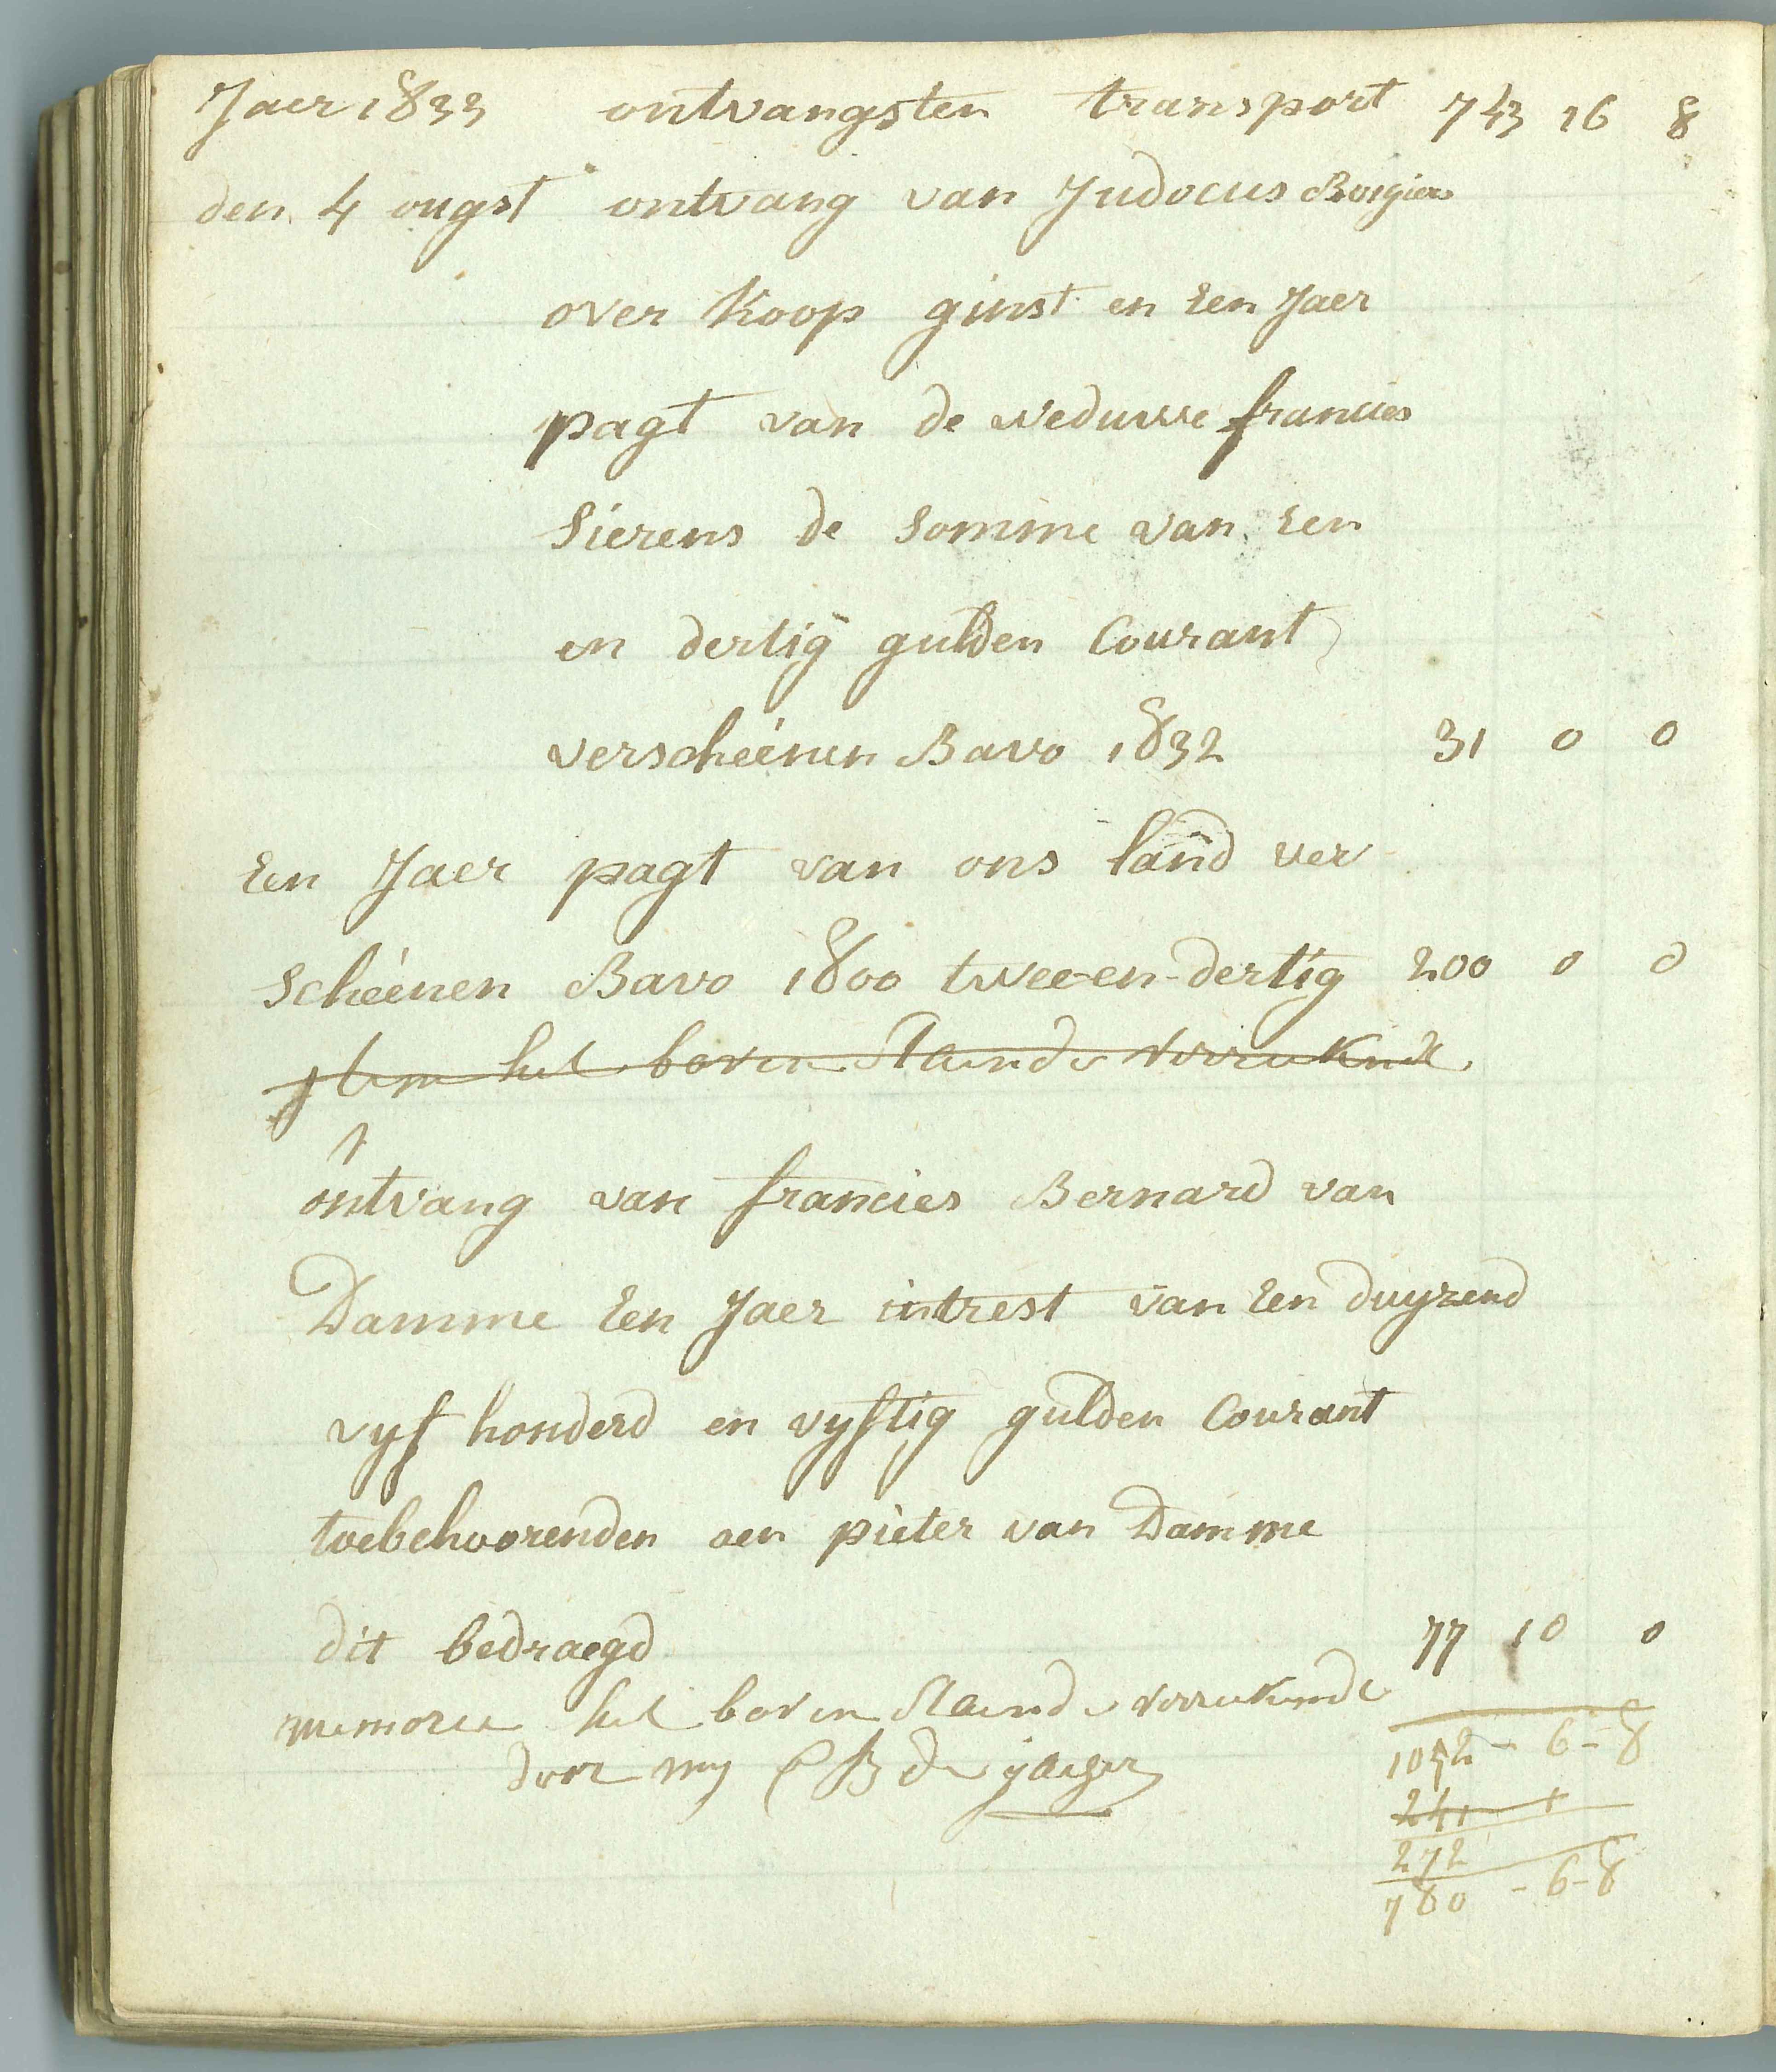 Jaer 1833 ontvangsten transport 743 16 8
den 4 ougst ontvang van Judocus Borgiers
over koop ginst en Een Jaer
pagt van de weduwe francies
Sierens de somme van Een
en dertig gulden Courant
verscheénen Bavo 1832 31 0 0
Een Jaer pagt van ons land ver
scheénen Bavo 1800 twee-en-dertig 200 0 0
het boven Staende
ontvang van francies Bernard van
Damme Een Jaer intrest van Een duyzend
vyf honderd en vyftig gulden Courant
toebehoorenden aen pieter van Damme
dit bedraegd 77 10 0
memorie het boven Staende
door my De jaeger
1052 - 6 - 8
241
272
780 - 6 - 8